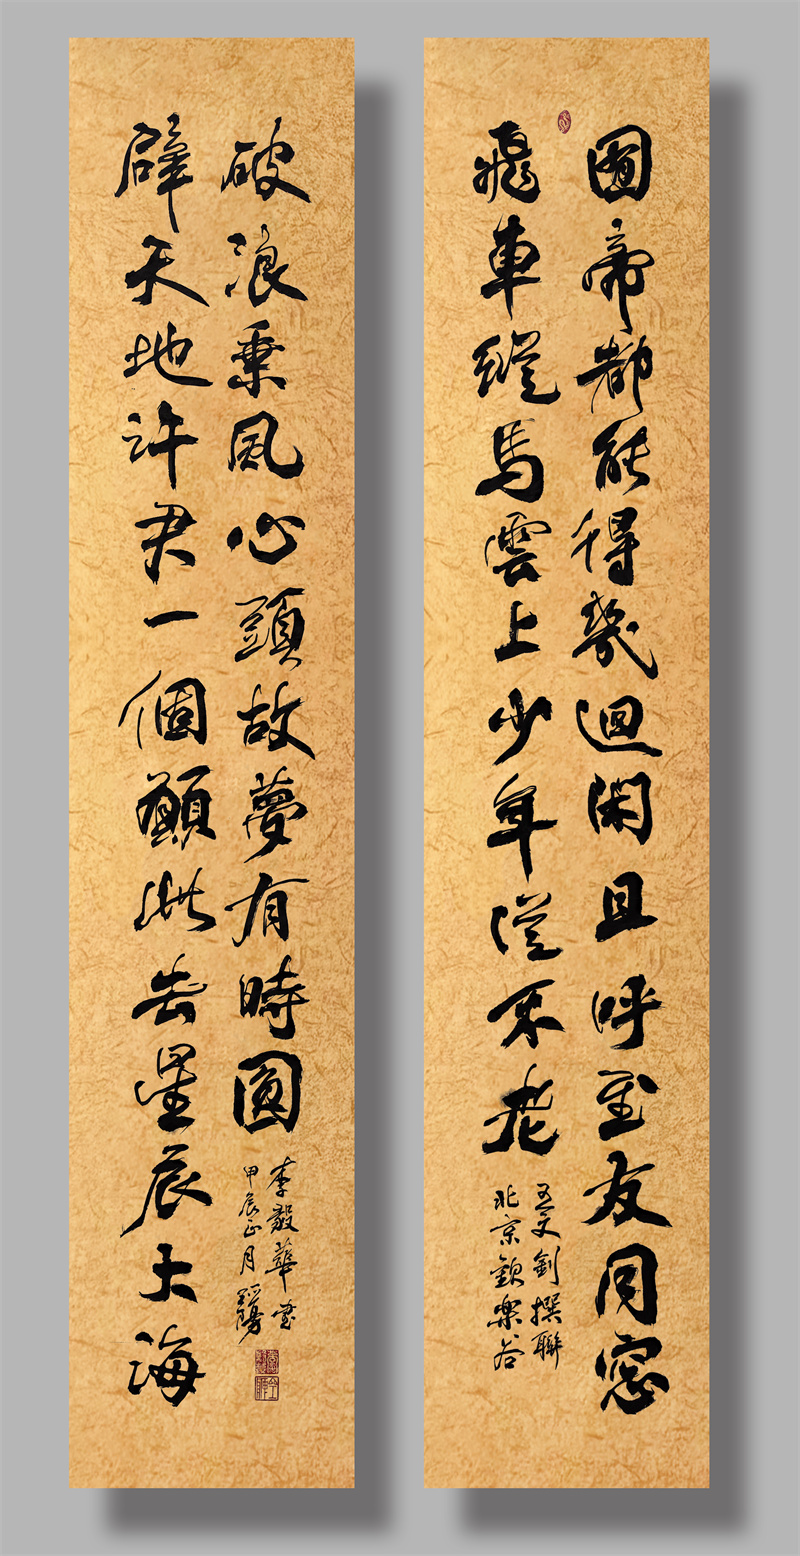 囿帝都能得幾迴閑且呼至友同窓
飛車縱馬雲上少年從不老
北京歡樂谷
王文釗撰聯
辟天地許君一個願此去星辰大海
破浪乘風心頭故夢有時圓
甲辰正月
李毅華書